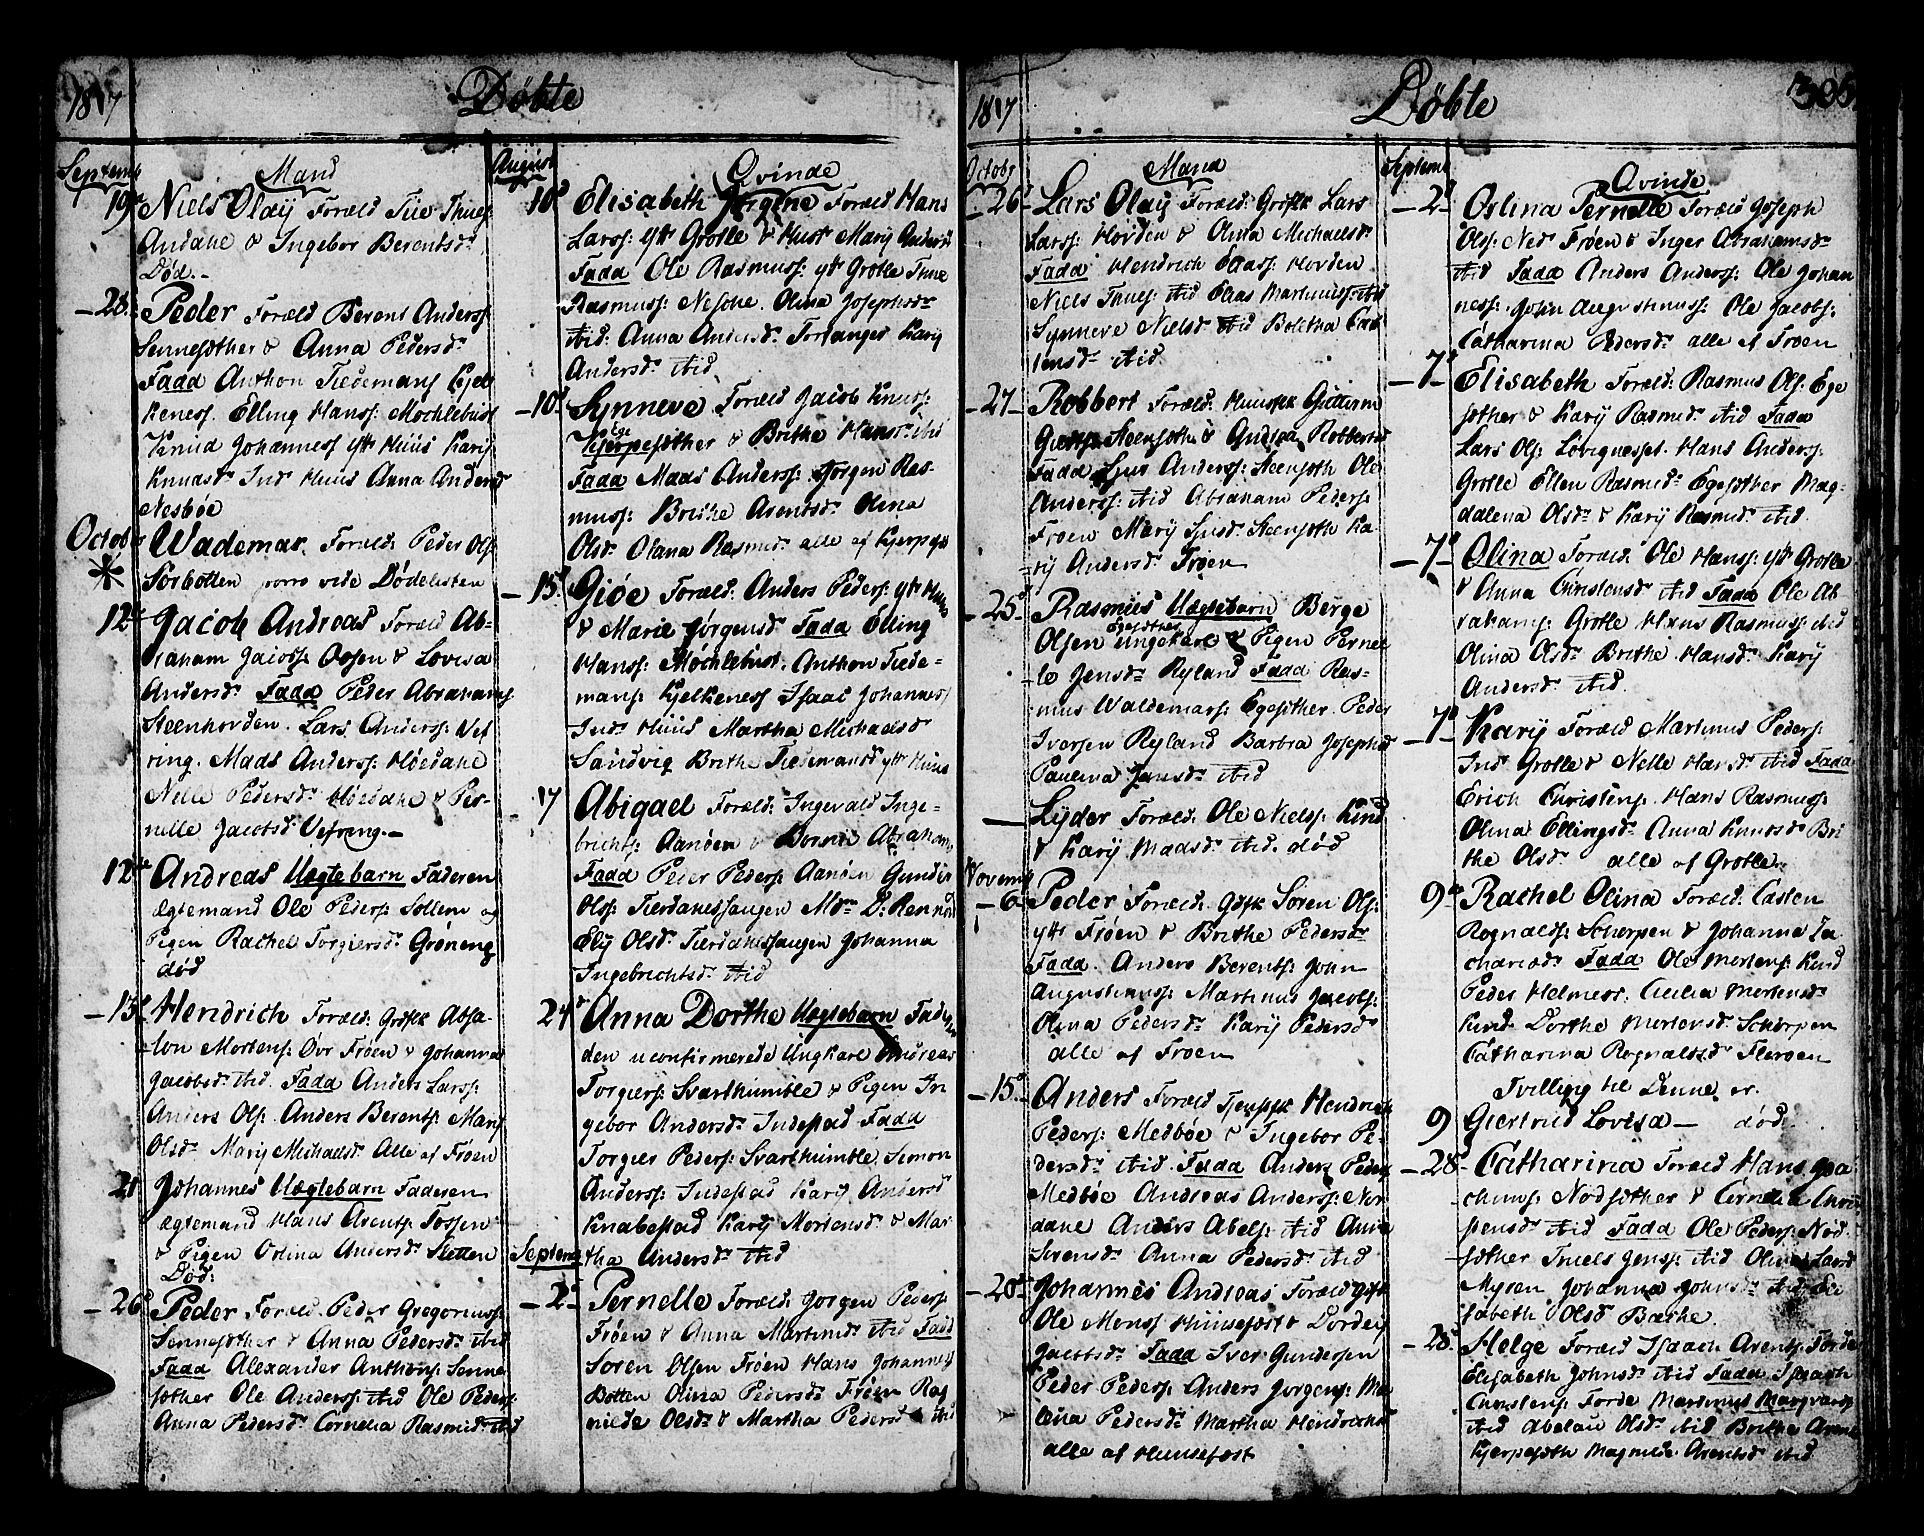 1817
Döbte
Septemb
Mand
19de Niels Olaij Foræld Tüe Thües
Andahe & Ingebor Berentsdr
Död.-
28 Peder Foræld Berent Anderss:
Sennesöther & Anna Pedersdr
Fadd Anthon Tiedemans Kjel
kenes Elling Hanss: Möchlebust
Knud Johannes ytt Huus Karij
Knudsdr Ind Huus Anna Andersd
Nesböe
Octobr Wademar. Foræld: Peder Ols:
Sorbotten porro vide Dödelisten
12te Jacob Andreas Foræld Ab-
raham Jacobs: Ossen & Lovisa
Andersdr Fadd Peder Abrahams
Steenhovden. Lars Anderss: Vef
ring. Mads Anderss: Höedahe
Nelle Pedersdr Höedahe & Per-
nelle Jacobsd: Vefring.-
12te Andreas Uægtebarn Faderen
ægtemand Ole Peders: Sollem og
Pigen Rachel Torgiersdr Gröneng
död
13de Hendrich Foræld: Gdfk Absa-
lon Mortens: Övr Fröen & Johanna
Jacobsdr ibid. Fadd Anders Larss:
Anders Ols: Anders Berents: Marij
Olsdr Marij Michaelsd Alle af Fröen
21 Johannes Uægtebarn Faderen
ægtemand Hans Arents: Tossen
& Pigen Oslina Andersdr Sletten
Död:
26d Peder Foræld. Peder Gregoriuss:
Sennesöther & Anna Pedersdr ibid
Fadd Alexander Anthons: Senne
söther Ole Anderss: ibid Ole Peders:
Anna Pedersdr Cornelia Rasmusd: ibid
August
Qvinde
10d Elisabeth Jörgine Foræld Hans
Larss: ytt Grotle & Hust Marij Andersd
Fadd Ole Rasmuss: ytt Grotle Thue
Rasmuss: Nesöhe. Olina Josephsdr
ibid: Anna Andersdr Torsanger Karij
Andersdr ibid
10d Synneve Foræld Jacob Knuds:
Ege
söther & Brithe Hansdr ibid
Fadd Mads Anderss: Jörgen Ras-
muss: Brithe Arentsdr Olina
Olsdr Olana Rasmusd: alle af
15d Giöe Foræld: Anders Peders: ytt Huus
& Marie Jörgensd Fadd Elling
Hanss: Möchlebust. Anthon Tiede-
mans Kjelkenes Isaac Johannes
Ind Huus Martha Michaelsd
Sandvig Brithe Tiedemansd ytt Huus
17 Abigael Foræld: Ingevald Inge-
brichts: Aanöen & Abraham
Fadd Peder Peders: Aanöen
Ols:
Elij Olsdr Johanna
Ingebrichtsdr ibid
24 Anna Dorthe Uægtebarn Fad
den uconfirmerede Ungkarl Andreas
Torgiers: Svarthumble & Pigen In
gebor Andersdr Indestad Fadd
Torgier Peders: Svarthumble. Simon
Anderss: Indestad Karij Andersd
Knabestad Karij Mortensdr & Mar
Septemb
tha Andersdr ibid
2d Pernelle Foræld: Jörgen Peders:
Fröen & Anna Martinusd: ibid Fadd
Sören Olsen Fröen Hans Johannes
Botten Olina Pedersdr Fröen Rag
nilde Olsdr & Martha Pedersdr ibid
1817
Döbte
305
Octobr
Mand
26d Lars Olaij Foræld: Gdfk Lars
Larss: Hovden & Olina Michaelsd
Fadd Hendrich Hovden
Niels Thues: ibid Elias Martinuss: ibid
Synneve Nielsd ibid Bolitha Car
lensdr ibid
27 Robbert Foræld: Huusfk Guttorm
Steensöth & Andrea Robbertsd
Fadd Sjur Anderss: Steensöth Ole
Anderss: ibid Abraham Peders:
Fröen Marij Sjusd. Steensöth Ka-
rij Andersdr Fröen
25d Rasmus Uægtebarn Berge
Egesöther
Olsen ungekarl & Pigen Pernel
le Jensdr Ryland Fadd Ras-
mus Waldemars: Egesöther. Peder
Ivarsen Ryland Barbra Josephsd
Paulina Jensdr ibid
Lyder Foræld: Ole Nielss: Kind
& Karij Madsdr ibid. död
Novemb
6 Peder Foræld. Gdfk Sören Ols:
ytt Fröen & Brithe Pedersdr
Fadd. Anders Berents: John
Augustinuss: Martinus Jacobs:
Olina Pedersdr Karij Pedersd
alle af Fröen
15d Anders Foræld Tjenfk Hendrich
Peders: Medböe & Ingebor Pe-
dersdr ibid. Fadd Anders Peders
Medböe Andreas Anderss: Nor
dane Anders Abels: ibid Anna
Ivensdr Anna Pedersdr ibid
20d Johannes Andreas Foræld gdfk
Ole Mons: Huusefæst & Dordei
Jacobsdr Fadd Iver Gundersen
Peder Peders: Anders Jörgens: Ma
lena Pedersdr Martha Hendrichsd
alle af Huusefæst
Septemb
Qvinde
2d Oslina Pernelle Foræld Joseph
Ols: Ned Fröen & Inger Abrahamsdr
ibid Fadd Anders Anderss: Ole Johan
ness: John Augustinuss: Ole Jacobs:
Catharina Pedersdr alle af Fröen
7d Elisabeth Foræld: Rasmus Ols: Ege
söther & Karij Rasmusd: ibid Fadd
Lars Ols: Hans Anderss:
Grotle Ellen Rasmusd: Egesöther Mag
dalena Olsdr & Karij Rasmusd: ibid.
7d Olina Foræld: Ole Hanss: ytt Grotle
& Anna Christensdr ibid Fadd Ole Ab
rahams: Grotle Hans Rasmuss: ibid
Olina Olsdr Brithe Hansdr Karij
Andersdr ibid.
7d Karij Foræld Martinus Peders:
Ind Grotle & Nelle Hansdr ibid Fadd
Erich Christens: Hans Rasmuss:
Olina Ellingsdr Anna Knudsdr Bri
the Olsdr alle af Grotle.
9de Rachel Olina Foræld: Casten
Rognalds: Scherpen & Johanna Za
chariæd: Fadd Ole Mortens: Kind
Peder Helmers: Cicilia Mortensdr
Kind Dorthe Mortensd Scherpen
Catharina Rognaldsdr Fleröen
Tvilling til Denne er
9 Giertrud Lovisa - död.
28 Catharina Foræld Hans Joa
chims: Nödsöther & Cornelia Chri
stensdr ibid Fadd Ole Peders: Nöd
söther Thiels Jens: ibid Olina Larsd
Myren Johanna Johnsdr ibid Eli
sabeth Olsd Barthe.
28d Helge Foræld Isaach Arents: Förde
Elisabeth Johnsdr ibid Fadd Isaach
Christens: Förde Martinus Margvards
ibid Abelau Olsdr ibid Brithe Arents
Kjerpesöth Magnilde Arentsd ibid